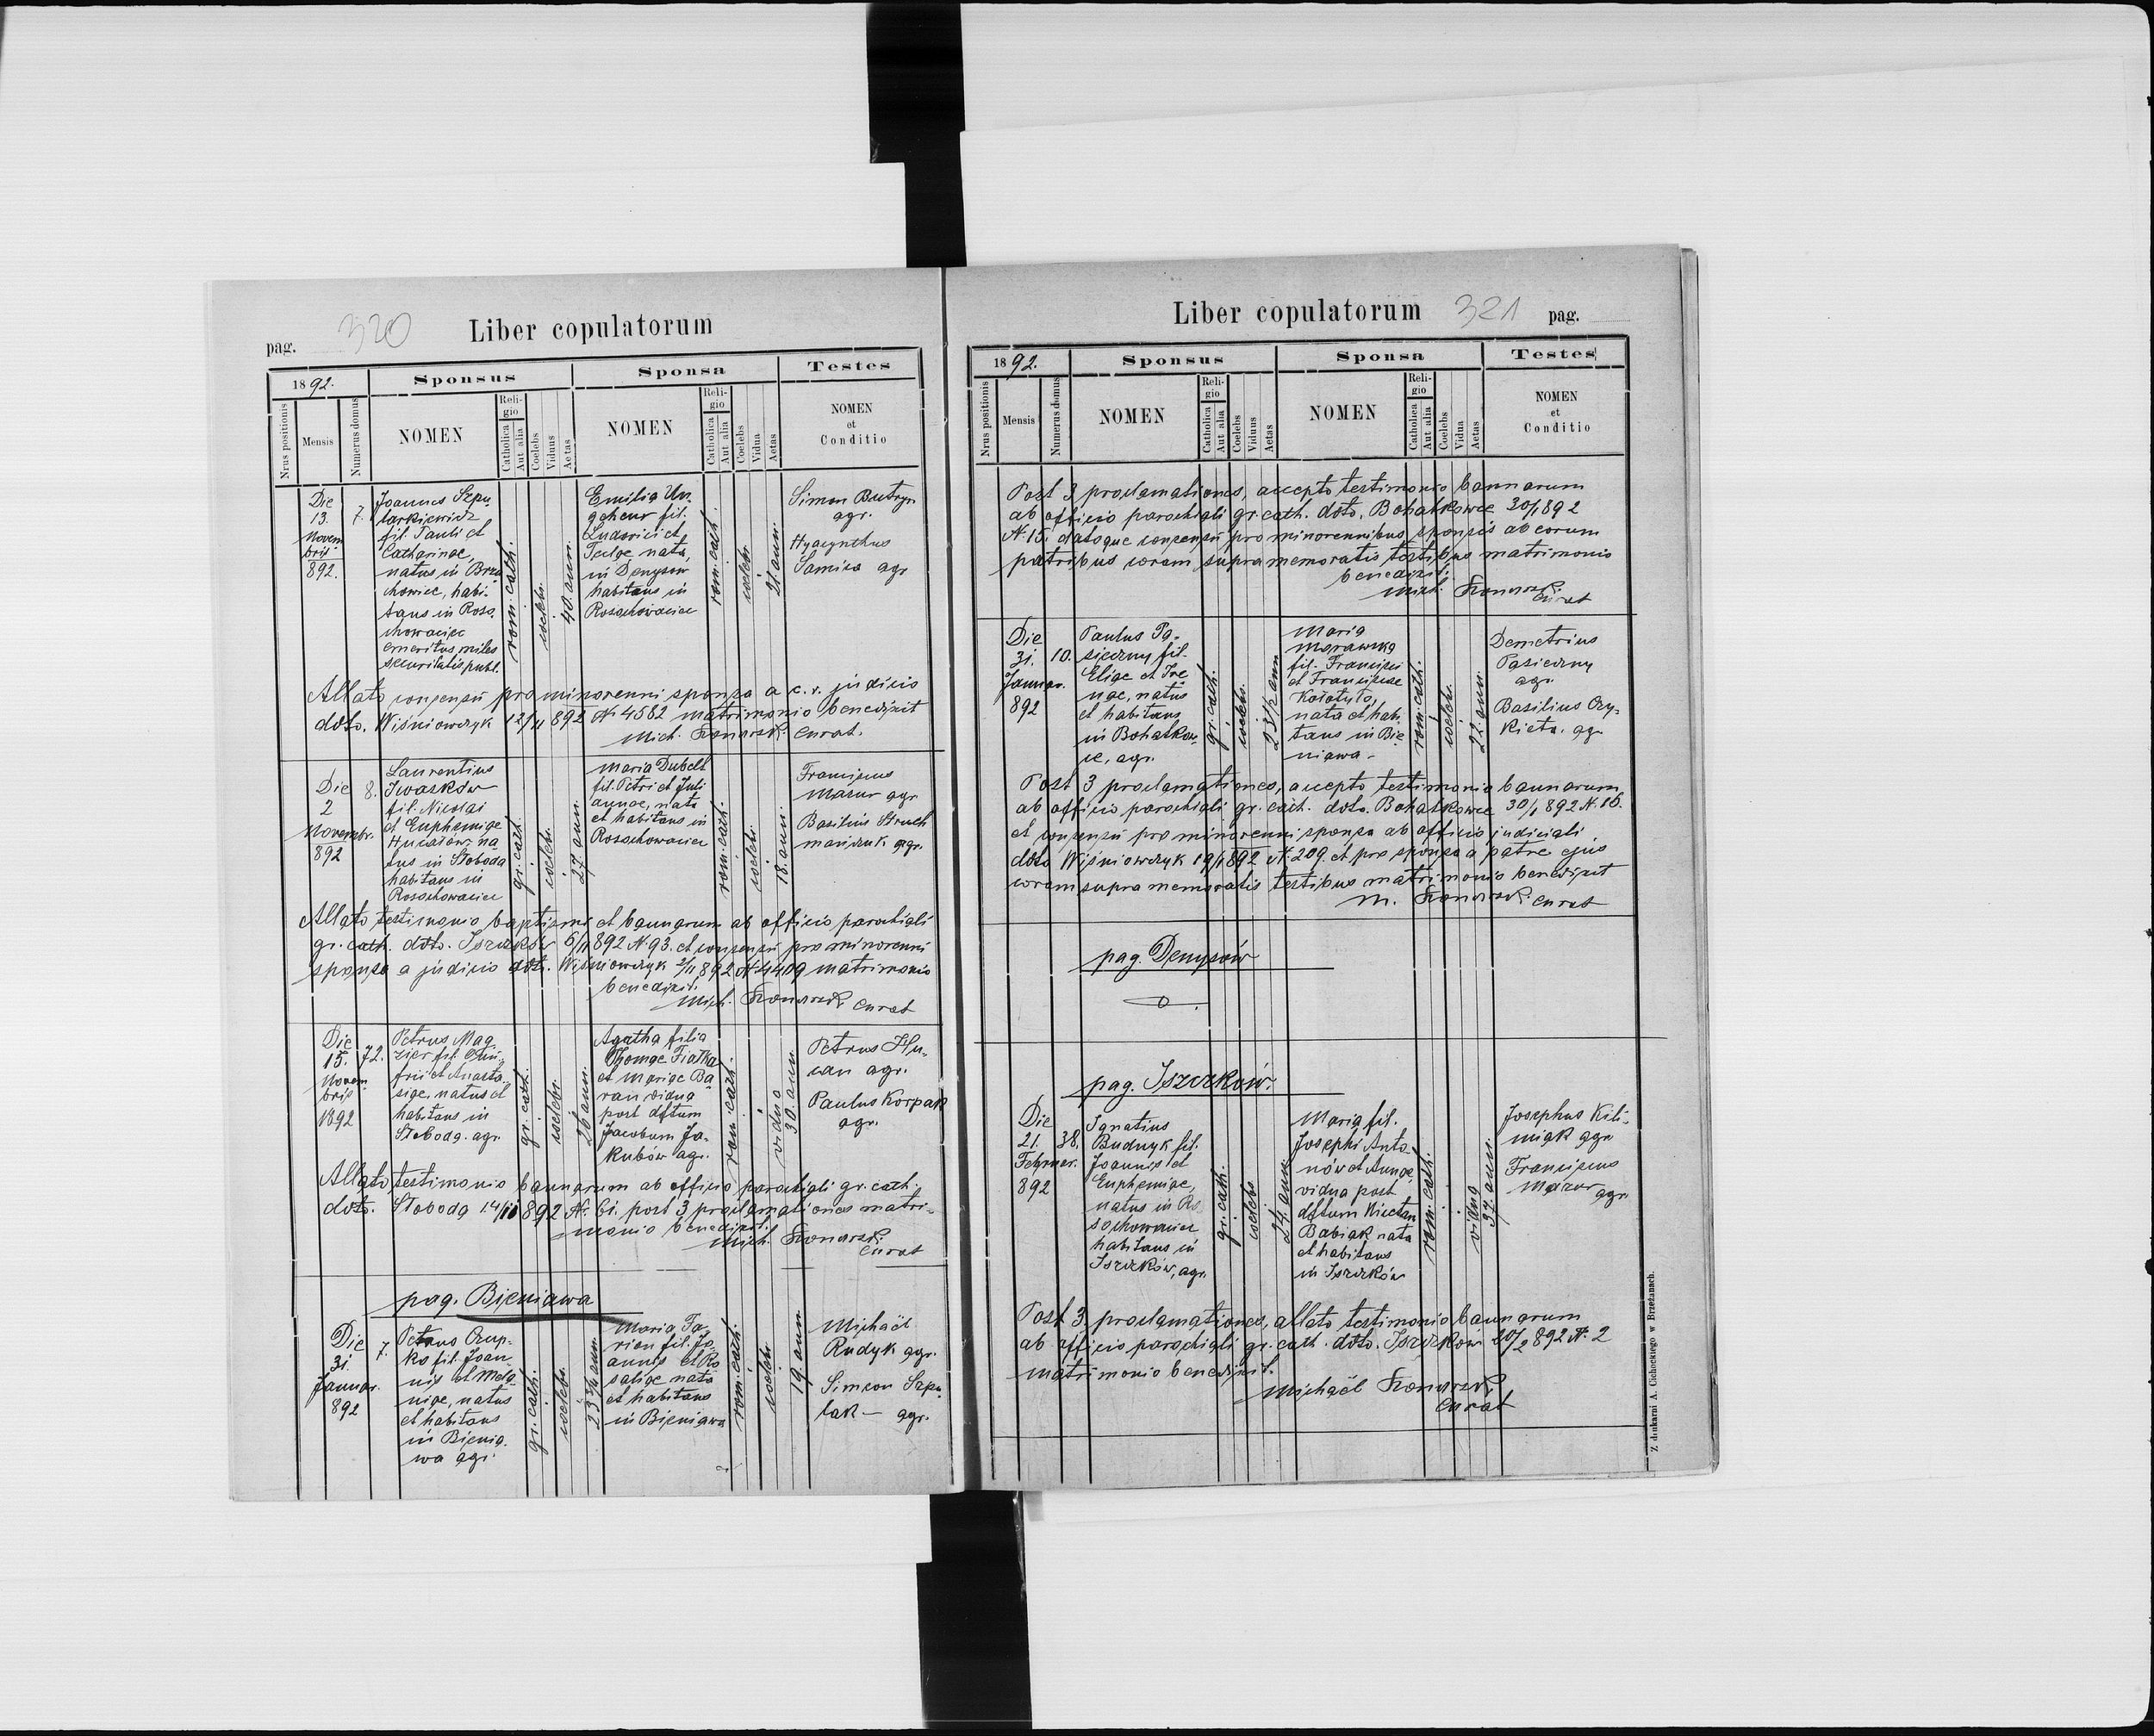 pag. 320 Liber copulatorum
1892. Sponsus Sponsa Testes
Nrus positionis Mensis Numerus domus NOMEN Religio Catholica Aut alia Coelebs Viduus Aetas NOMEN Religio Catholica Aut alia Coelebs Vidua Aetas NOMEN et Conditio
Die
13.
Novem
bris
892.
7.
Joannes Szpu
larkiewicz
fil. Pauli et
Catharinae,
natus in Brzu
chowiec, habi-
tans in Roso
chowaciec
emeritus miles
securitatis publ.
rom. cath.
coelebs.
40. ann.
Emilia Un-
geheur fil.
Ludovici et
Teclae nata,
in Denysów
habitans in
Rosochowaciec
rom. cath.
coelebs
21 ann.
Simon Butryn
agr.
Hyacynthus
Samica agr
Allato consensu pro minorenni sponsa a c. r. judicio
ddto. Wiśniowczyk 12/11 892 N. 4582 matrimonio benedixit
Mich. Konarski Curat.
Die
2
Novembr.
892
8.
Laurentius
Iwasków
fil. Nicolai
et Euphemiae
na
tus in Słoboda
habitans in
Rosochowaciec
gr. cath.
coelebs.
27 ann.
Maria Dubelt
fil. Petri et Juli
annae, nata
et habitans in
Rosochowaciec
rom. cath.
coelebs.
18. ann.
Franciscus
Mazur agr
Basilius Struch
manczuk agr.
Allato testimonio baptismi et bannorum ab officio parochiali
gr. cath. ddto. Iszczków 6/11 892 N. 93. et consensu pro minorenni
sponsa a judicio ddto. Wiśniowczyk 2/11 892 N. 4409 matrimonio
benedixit.
Mich. Konarski Curat
Die
15.
Novem
bris
1892
72.
Petrus Mag
zier fil. Onu
frii et Anasta
siae, natus et
habitans in
Słoboda. agr.
gr. cath.
coelebs.
26 ann.
Agatha filia
Thomae Fiatka
et Mariae Ba
ran vidua
post dftum
Jacobum Ja-
kubów agr.
rom. cath.
vidua
30. ann
Petrus Hu-
can agr.
Paulus Korpak
agr.
Allato testimonio bannorum ab officio parochiali gr. cath.
ddto. Słoboda 14/11 892 N. 61. post 3 proclamationes matri-
monio benedixit.
Mich. Konarski
Curat
pag. Bieniawa
Die
31.
Januar.
892
7.
Petrus Czup-
ko fil. Joan
nis et Mela
niae, natus
et habitans
in Bienia
wa agr.
gr. cath.
coelebs.
Maria Ja
rien fil. Jo
annis et Ro
saliae nata
et habitans
in Bieniawa
rom. cath.
coelebs.
19. ann
Michaël
Rudyk agr.
Simeon Szpu
lak — agr.
Liber copulatorum 321 pag.
1892. Sponsus Sponsa Testes
Nrus positionis Mensis Numerus domus NOMEN Religio Catholica Aut alia Coelebs Viduus Aetas NOMEN Religio Catholica Aut alia Coelebs Vidua Aetas NOMEN et Conditio
Post 3 proclamationes, accepto testimonio bannorum
ab officio parochiali gr. cath. ddto. Bohatkowce 30/1 892
N. 15. datoque consensu pro minorennibus sponsis ab eorum
patribus coram supra memoratis testibus matrimonio
benedixit.
Mich. Konarski
Curat
Die
31.
Januar.
892
10.
Paulus Pa-
sieczny fil.
Eliae et Ire
nae, natus
et habitans
in Bohatkow
ce, agr.
gr. cath.
coelebs.
23 1/2 ann
Maria
Morawska
fil. Francisci
et Franciscae
Kołotyło,
nata et habi
tans in Bie
niawa -
rom. cath.
coelebs.
22 ann.
Demetrius
Pasieczny
agr.
Basilius Czy-
kieta. agr.
Post 3 proclamationes, accepto testimonio bannorum,
ab officio parochiali gr. cath. ddto. Bohatkowce 30/1 892 N. 16.
et consensu pro minorenni sponsa ab officio judiciali
ddto Wiśniowczyk 19/1 892 N. 209. et pro sponsa a patre ejus
coram supra memoratis testibus matrimonio benedixit
M. Konarski Curat
pag. Denysów
pag. Iszczków.
Die
21.
Februar.
892
38.
Ignatius
Budnyk fil.
Joannis et
Euphemiae,
natus in Ro
sochowaciec
habitans in
Iszczków, agr.
gr. cath.
coelebs
24. ann.
Maria fil.
Josephi Anto-
nów et Annae,
vidua post
dftum Nicetam
Babiak nata
et habitans
in Iszczków
rom. cath.
vidua
37 ann.
Josephus Kili-
miak agr
Franciscus
Mazur agr.
Post 3 proclamationes, allato testimonio bannorum
ab officio parochiali gr. cath. ddto. Iszczków 20/2 892 N. 2
matrimonio benedixit.
Michaël Konarski
Curat
Z drukarni A. Cichockiego w Brzeżanach.